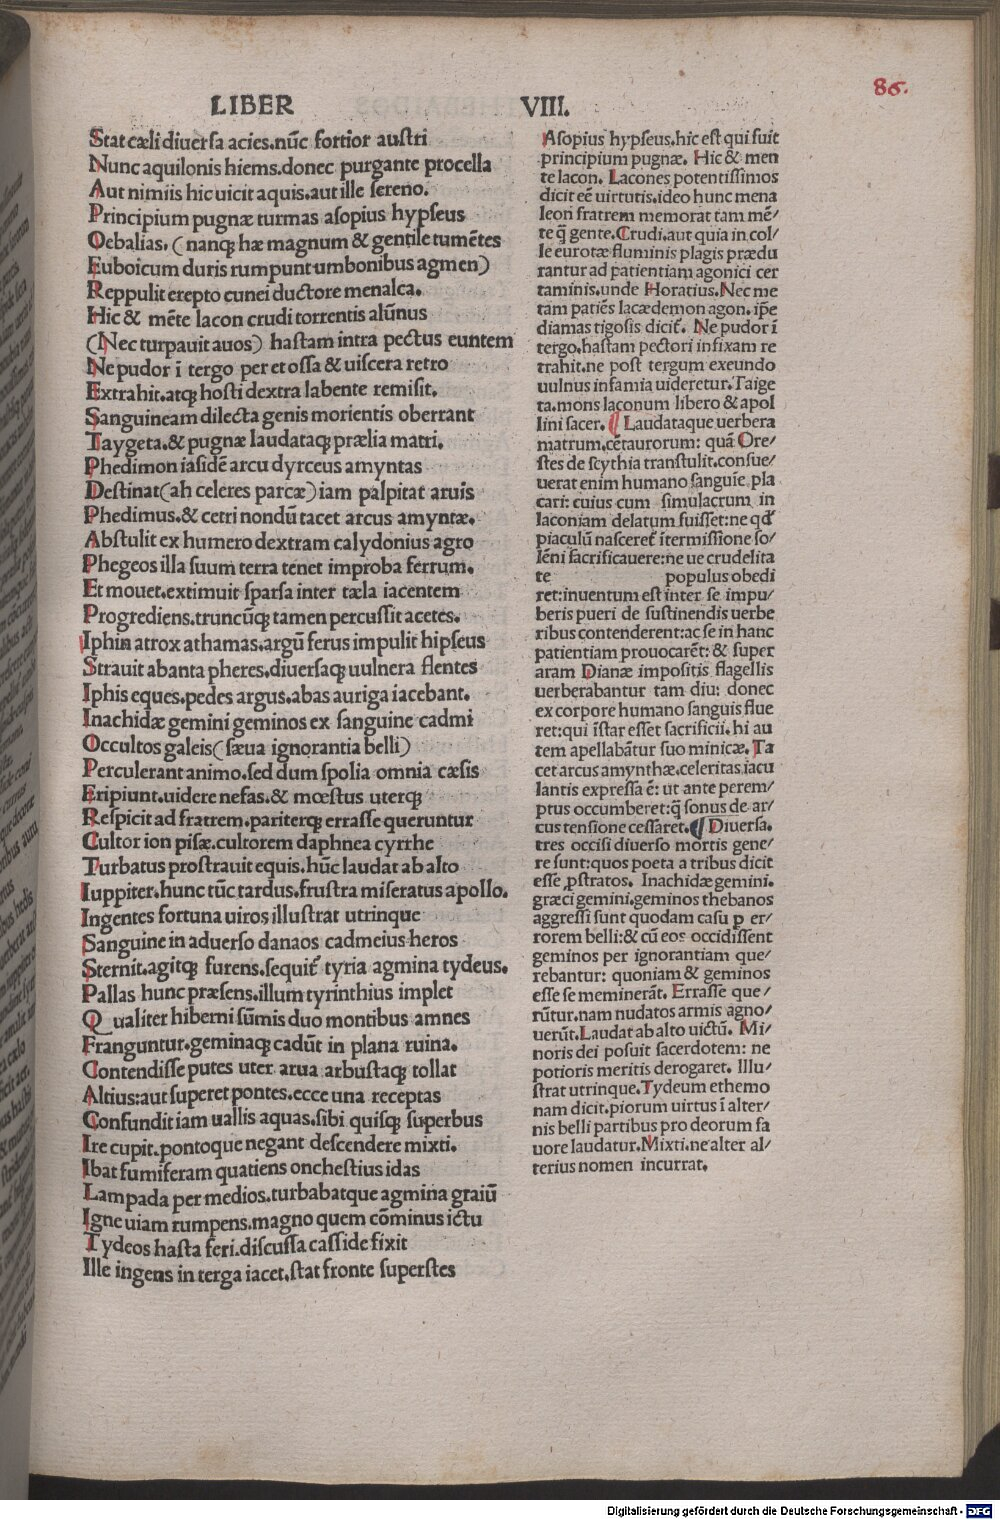 LIBER VIII.
86.
Stat cæli diuersa acies.nūc fortior austri
Nunc aquilonis hiems.donec purgante procella
Aut nimiis hic uicit aquis.aut ille sereno.
Principium pugnæ turmas asopius hypseus
Oebalias.(nanq; hæ magnum & gentile tumētes
Euboicum duris rumpunt umbonibus agmen)
Reppulit erepto cunei ductore menalca.
Hic & mēte lacon crudi torrentis alūnus
(Nec turpauit auos) hastam intra pectus euntem
Ne pudor ī tergo per et ossa & uiscera retro
Extrahit.atq; hosti dextra labente remisit.
Sanguineam dilecta genis morientis oberrant
Taygeta.& pugnæ laudataq; prælia matri.
Phedimon iasidē arcu dyrceus amyntas
Destinat(ah celeres parcæ)iam palpitat aruis
Phedimus.& cetri nondū tacet arcus amyntæ.
Abstulit ex humero dextram calydonius agro
Phegeos illa suum terra tenet improba ferrum.
Et mouet.extimuit sparsa inter tæla iacentem
Progrediens.truncūq; tamen percussit acetes.
Iphin atrox athamas.argū ferus impulit hipseus
Strauit abanta pheres.diuersaq; uulnera flentes
Iphis eques.pedes argus.abas auriga iacebant.
Inachidæ gemini geminos ex sanguine cadmi
Occultos galeis(sæua ignorantia belli)
Perculerant animo.sed dum spolia omnia cæsis
Eripiunt.uidere nefas.& mœstus uterq;
Respicit ad fratrem.pariterq; errasse queruntur
Cultor ion pisæ.cultorem daphnea cyrrhe
Turbatus prostrauit equis.hūc laudat ab alto
Iuppiter.hunc tūc tardus.frustra miseratus apollo.
Ingentes fortuna uiros illustrat utrinque
Sanguine in aduerso danaos cadmeius heros
Sternit.agitq; furens.sequit̄ tyria agmina tydeus.
Pallas hunc præsens.illum tyrinthius implet
Qualiter hiberni sūmis duo montibus amnes
Franguntur.geminaq; cadūt in plana ruina.
Contendisse putes uter arua arbustaq; tollat
Altius:aut superet pontes.ecce una receptas
Confundit iam uallis aquas.sibi quisq; superbus
Ire cupit.pontoque negant descendere mixti.
Ibat fumiferam quatiens onchestius idas
Lampada per medios.turbabatque agmina graiū
Igne uiam rumpens.magno quem cōminus ictu
Tydeos hasta feri.discussa casside fixit
Ille ingens in terga iacet.stat fronte superstes
Asopius hypseus.hic est qui fuit
principium pugnæ. Hic & men
te lacon. Lacones potentissimos
dicit eē uirtutis.ideo hunc mena
leon fratrem memorat tam mē/
te q̄ gente.Crudi.aut quia in col/
le eurotæ fluminis plagis prædu
rantur ad patientiam agonici cer
taminis.unde Horatius.Nec me
tam patiēs lacædemon agon. ip̄e
diamastigosis dicit̄. Ne pudor ī
tergo.hastam pectori infixam re
trahit.ne post tergum exeundo
uulnus infamia uideretur.Taige
ta.mons laconum libero & apol
lini sacer. ¶ Laudataque uerbera
matrum.cētaurorum: quā Ore/
stes de scythia transtulit.consue/
uerat enim humano sanguīe pla
cari: cuius cum simulacrum in
laconiam delatum fuisset:ne qd̄
piaculū nasceret̄ ītermissione so/
lēni sacrificauere:ne ue crudelita
te populus obedi
ret:inuentum est inter se impu/
beris pueri de sustinendis uerbe
ribus contenderent:ac se in hanc
patientiam prouocarēt: & super
aram Dianæ impositis flagellis
uerberabantur tam diu: donec
ex corpore humano sanguis flue
ret:qui īstar esset sacrificii.hi au
tem apellabātur suo minicæ.Ta
cet arcus amynthæ.celeritas iacu
lantis expressa ē: ut ante perem/
ptus occumberet:q̄ sonus de ar/
cus tensione cessaret.¶ Diuersa.
tres occisi diuerso mortis gene/
re sunt:quos poeta a tribus dicit
esse ꝓstratos. Inachidæ gemini.
græci gemini.geminos thebanos
aggressi sunt quodam casu ꝑ er/
rorem belli:& cū eos occidissent
geminos per ignorantiam que/
rebantur: quoniam & geminos
esse se meminerāt. Errasse que/
rūtur.nam nudatos armis agno/
uerūt.Laudat ab alto uictū. Mi/
noris dei posuit sacerdotem: ne
potioris meritis derogaret. Illu/
strat utrinque.Tydeum ethemo
nam dicit.piorum uirtus ī alter/
nis belli partibus pro deorum fa
uore laudatur.Mixti.ne alter al/
terius nomen incurrat.
Digitalisierung gefördert durch die Deutsche Forschungsgemeinschaft - DFG